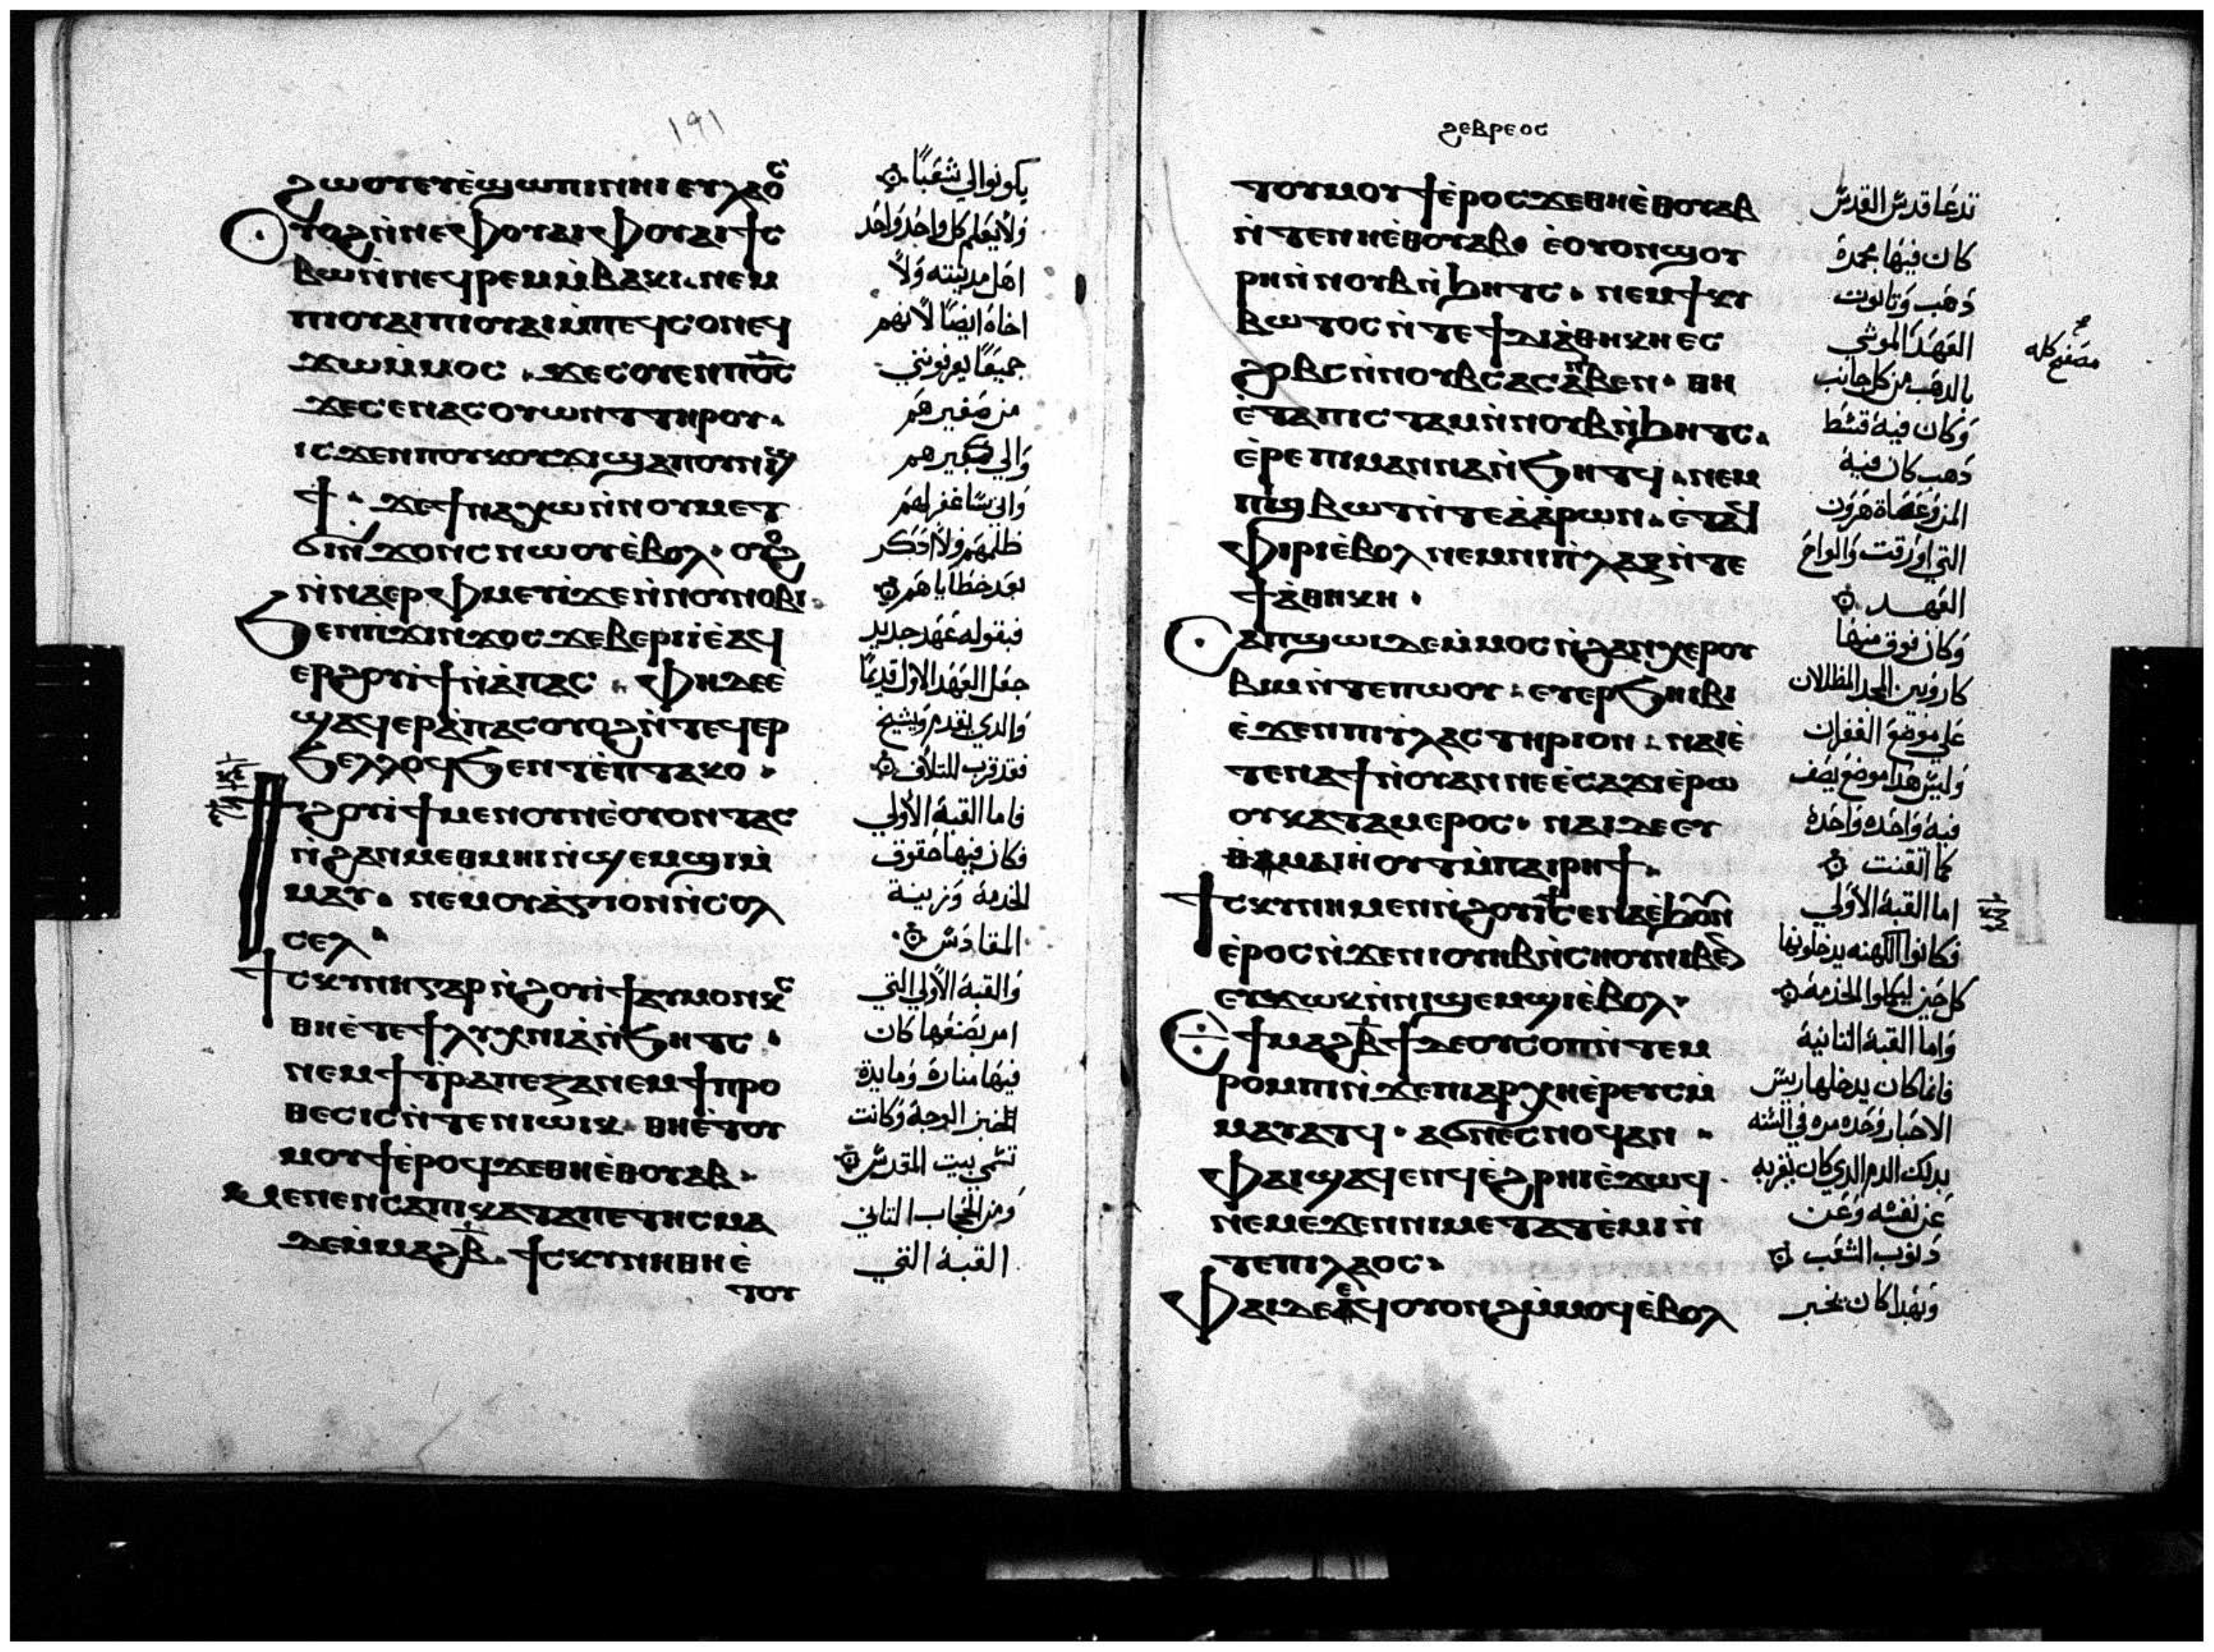 ١٩١
ϩⲱⲟⲩ ⲉⲩⲉ̀ϣⲱⲡⲓ ⲛⲏⲓ ⲉⲩⲗⲁⲟⲥ
ⲟⲩⲟϩ ⲛ̀ⲛⲉ ⲫⲟⲩⲁⲓ ⲫⲟⲩⲁⲓ ϯⲥ
ⲃⲱ ⲙ̀ⲡⲉϥⲣⲉⲙⲙ̀ⲃⲁⲕⲓ ⲛⲉⲙ
ⲡⲓⲟⲩⲁⲓ ⲡⲓⲟⲩⲁⲓ ⲙ̀ⲡⲉϥⲥⲟⲛ ⲉϥ
ϫⲱ ⲙ̀ⲙⲟⲥ ϫⲉ ⲥⲟⲩⲉⲛ ⲡϭⲥ
ϫⲉ ⲥⲉⲛⲁⲥⲟⲩⲱⲛⲧ ⲧⲏⲣⲟⲩ
ⲓⲥϫⲉⲛ ⲡⲟⲩⲕⲟⲩϫⲓ ϣⲁ ⲡⲟⲩⲛⲓϣ
ϯ ϫⲉ ϯⲛⲁⲭⲱ ⲛ̀ⲛⲟⲩⲙⲉⲧ
ϭⲓⲛ̀ϫⲟⲛⲥ ⲛⲱⲟⲩ ⲉ̀ⲃⲟⲗ ⲟⲩⲟϩ
ⲛ̀ⲛⲁⲉⲣⲫⲙⲉⲩⲓ̀ ϫⲉ ⲛ̀ⲛⲟⲩⲛⲟⲃⲓ
ϧⲉⲛ ⲡϫⲓⲛϫⲟⲥ ϫⲉ ⲃⲉⲣⲓ ⲉ̀ⲁϥ
ⲉⲣ ϩⲟⲩⲓϯ ⲛ̀ⲁ̀ⲡⲁⲥ ⲫⲏ ⲇⲉ ⲉ̀
ϣⲁϥⲉⲣⲁ̀ⲡⲁⲥ ⲟⲩⲟϩ ⲛ̀ⲧⲉϥⲉⲣ
ϧⲉⲗⲗⲟ ϥϧⲉⲛⲧ ⲉ̀ⲡⲧⲁⲕⲟ
ϯϩⲟⲩⲓϯ ⲙⲉⲛ ⲟⲩⲛ ⲛⲉ ⲟⲩⲟⲛⲧⲁⲥ
ⲛ̀ϩⲁⲛⲙⲉⲑⲙⲏⲓ ⲛ̀ϣⲉⲙϣⲓ ⲙ̀
ⲙⲁⲩ ⲛⲉⲙ ⲟⲩⲁ̀ⲅⲓⲟⲛ ⲛ̀ⲥⲟⲗ
ⲥⲉⲗ
ϯⲥⲕⲩⲛⲏ ⲅⲁⲣ ⲛ̀ϩⲟⲩⲓϯ ⲁⲩⲙⲟⲛⲕⲥ
ⲑⲏ ⲉ̀ⲧⲉ ϯⲗⲩⲭⲛⲓⲁ ⲛ̀ϧⲏⲧⲥ
ⲛⲉⲙ ϯⲧⲣⲁⲡⲉⲍⲁ ⲛⲉⲙ ϯⲡⲣⲟ
ⲑⲉⲥⲓⲥ ⲛ̀ⲧⲉ ⲛⲓⲱⲓⲕ ⲑⲏ ⲉ̀ⲧⲟⲩ
ⲙⲟⲩϯ ⲉ̀ⲣⲟϥ ϫⲉ ⲑⲏ ⲉⲑⲟⲩⲁⲃ
ⲙⲉⲛⲉⲛⲥⲁ ⲡⲓⲕⲁⲧⲁⲡⲉⲧⲏⲥⲙⲁ
ⲇⲉ ⲙ̀ⲙⲁϩⲃ̅ ϯⲥⲕⲩⲛⲏ ⲑⲏ ⲉ̀
ⲧⲟⲩ
يكونوا لي شعبا
ولا يعلم كل واحد واحد
اهل مدينته ولا
اخاه ايضا لانهم
جميعا يعرفونني
من صغيرهم
والي كبيرهم
واني ساغفر لهم
ظلمهم ولا اذكر
بعد خطاياهم
فبقوله عهد جديد
جعل العهد الاول قديما
والدي تقدم ويشيخ
فقد قرب للتلاف
فاما القبة الاولي
فكان فيها حقوق
الخدمة وزينة
المقادس
والقبة الاولي التي
امر بصنعها كان
فيها منارة ومايدة
الخبز الوجه وكانت
تسمي بيت المقدس
ومن الحجاب التاني
القبة التي
ϩⲉⲃⲣⲉⲟⲥ
ⲧⲟⲩⲙⲟⲩϯ ⲉ̀ⲣⲟⲥ ϫⲉ ⲑⲏ ⲉ̀ⲑⲟⲩⲁⲃ
ⲛ̀ⲧⲉ ⲛⲏ ⲉ̀ⲑⲟⲩⲁⲃ ⲉ̀ⲟⲩⲟⲛ ϣⲟⲩ
ⲣⲏ ⲛ̀ⲛⲟⲩⲃ ⲛ̀ϧⲏⲧⲥ ⲛⲉⲙ ϯⲕⲩ
ⲃⲱⲧⲟⲥ ⲛ̀ⲧⲉ ϯⲇⲓⲁ̀ⲑⲏⲕⲏ ⲉⲥ
ϩⲟⲃⲥ ⲛ̀ⲛⲟⲩⲃ ⲥⲁⲥⲁ ⲛⲓⲃⲉⲛ ⲑⲏ
ⲉ̀ⲧⲁ ⲡⲓⲥⲧⲁⲙ ⲛ̀ⲛⲟⲩⲃ ⲛ̀ϧⲏⲧⲥ
ⲉ̀ⲣⲉ ⲡⲓⲙⲁⲛⲛⲁ ⲛ̀ϧⲏⲧϥ ⲛⲉⲙ
ⲡⲓϣⲃⲱⲧ ⲛ̀ⲧⲉ ⲁ̀ⲁ̀ⲣⲱⲛ ⲉ̀ⲧⲁϥ
ⲫⲓⲣⲓ ⲉ̀ⲃⲟⲗ ⲛⲉⲙ ⲛⲓⲡⲗⲁⲝ ⲛ̀ⲧⲉ
ϯⲇⲓⲁⲑⲏⲕⲏ
ⲥⲁⲡϣⲱⲓ ⲇⲉ ⲙ̀ⲙⲟⲥ ⲛ̀ϩⲁⲛⲭⲉⲣⲟⲩ
ⲃⲓⲙ ⲛ̀ⲧⲉ ⲡⲱⲟⲩ ⲉⲩⲉⲣϧⲏⲓⲃⲓ
ⲉ̀ϫⲉⲛ ⲡⲓⲓⲗⲁⲥⲧⲏⲣⲓⲟⲛ ⲛⲁⲓ ⲉ̀
ⲧⲉ ⲛⲁϯⲛⲟⲩ ⲁⲛ ⲛⲉ ⲉ̀ⲥⲁϫⲓ ⲉ̀ⲣⲱ
ⲟⲩ ⲕⲁⲧⲁ ⲙⲉⲣⲟⲥ ⲛⲁⲓ ⲇⲉ ⲉⲩ
ⲑⲁⲙⲓⲏⲟⲩⲧ ⲙ̀ⲡⲁⲓⲣⲏϯ
ϯⲥⲕⲩⲛⲏ ⲙⲉⲛ ⲛ̀ϩⲟⲩⲓϯ ⲥⲉⲛⲁⲉ̀ϧⲟⲩⲛ
ⲉ̀ⲣⲟⲥ ⲛ̀ϫⲉ ⲛⲓⲟⲩⲏⲃ ⲛ̀ⲥⲏⲟⲩ ⲛⲓⲃⲉⲛ
ⲉⲩϫⲱⲕ ⲛ̀ⲛⲓϣⲉⲙϣⲓ ⲉ̀ⲃⲟⲗ
ϯⲙⲁϩⲃ̅ϯ ⲇⲉ ⲟⲩⲥⲟⲡ ⲛ̀ⲧⲉⲙ
ⲣⲟⲙⲡⲓ ⲛ̀ϫⲉ ⲡⲓⲁⲣⲭⲏⲉ̀ⲣⲉⲩⲥ ⲙ̀
ⲙⲁⲩⲁⲧϥ ⲁϭⲛⲉ ⲥⲛⲟϥ ⲁⲛ
ⲫⲁⲓ ϣⲁϥⲉⲛϥ ⲉ̀ϩⲣⲏⲓ ⲉ̀ϫⲱϥ
ⲛⲉⲙ ⲉ̀ϫⲉⲛ ⲛⲓⲙⲉⲧⲁⲧⲉ̀ⲙⲓ ⲛ̀
ⲧⲉ ⲡⲓⲗⲁⲟⲥ
ⲫⲁⲓ ⲇⲉ ⲉ̀ϥⲟⲩⲟⲛϩ ⲙ̀ⲙⲟϥ ⲉ̀ⲃⲟⲗ
تدعا قدس القدس
كان فيها مجمرة
دهب وتابوت
العهد الموشي
بالدهب من كل جانب
وكان فيه قسط
دهب كان فيه
المن وعصاة هرون
التي اورقت والواح
العهد
وكان فوق منها
كاروبين المجد المظللان
علي موضع الغفران
وليس هدا موضع نصف
فيه واحده واحدة
كما اتقنت
اما القبة الاولي
فكانوا الكهنه يدخلونها
كل حين ليكملوا الخدمة
واما القبة التانية
فانما كان يدخلها ريس
الاحبار وحده مره في السنه
بدلك الدم الدي كان يقربه
عن نفسه وعن
دنوب الشعب
وبهدا كان يخبر
مصفح كله